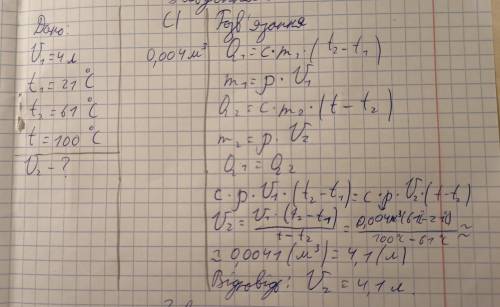 Дано:
V₁=4л
t₁=21°C
t₂=61°C
t=100°C
V₂-?
СІ
0,004м³
Розв'язання
Q₁=c·m₁·(t₂-t₁)
m₁=ρ·V₁
Q₂=c·m₂·(t-t₂)
m₂=ρ·V₂
Q₁=Q₂
c·ρ·V₁·(t₂-t₁)=c·ρ·V₂·(t-t₂)
V₂=V₁·(t₂-t₁)/t-t₂=0,004м³(61-21)/100°C-61°C≈
≈0,0041(м³)=4,1(л)
Відповідь: V₂=4,1л.